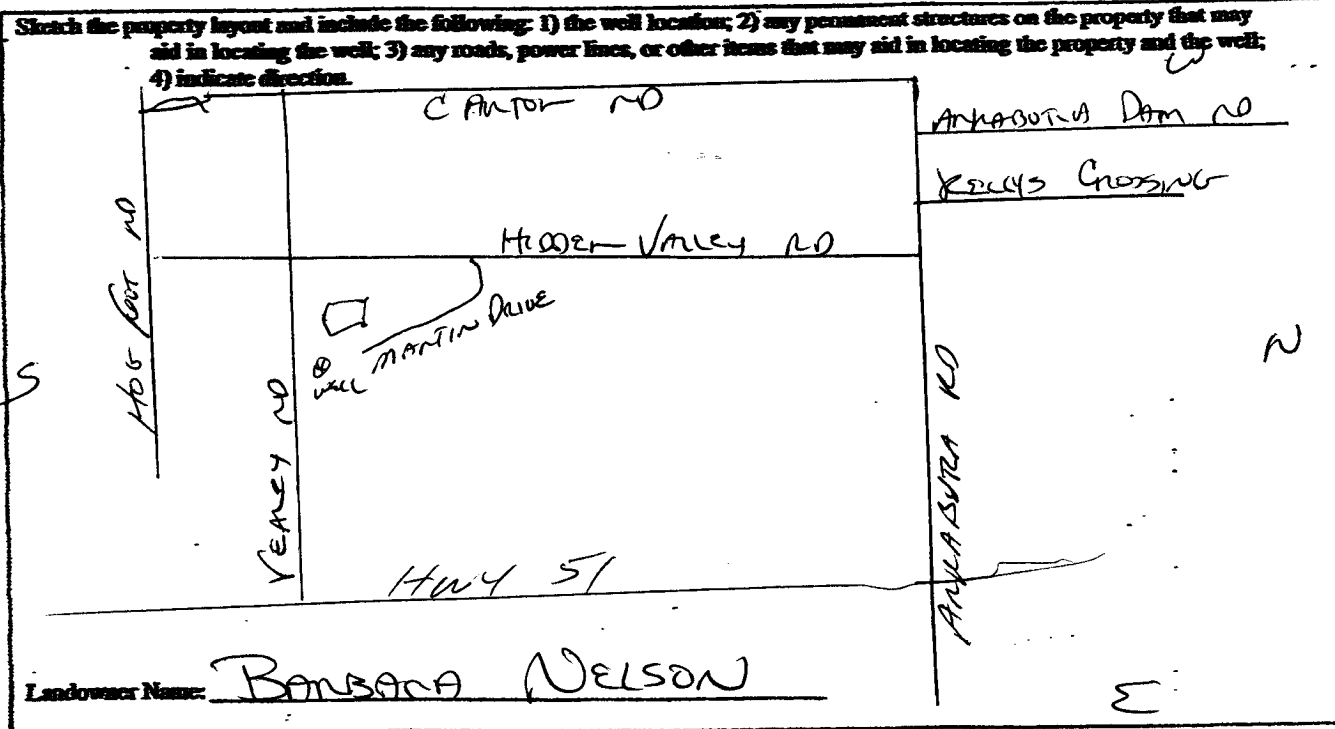 Sketch the property layout and include the following: 1) the well location; 2) any permanent structures on the property that may
aid in locating the well; 3) any roads, power lines, or other items that may aid in locating the property and the well;
4) indicate direction.
W
CANTOR RD
ARKABUTLA DAM RD
KELLYS CROSSING
HOG FOOT RD
HIDDEN VALLEY RD
MARTIN DRIVE
WELL
S
N
VEALEY RD
ARKABUTLA RD
HWY 51
Landowner Name: BARBARA NELSON
E